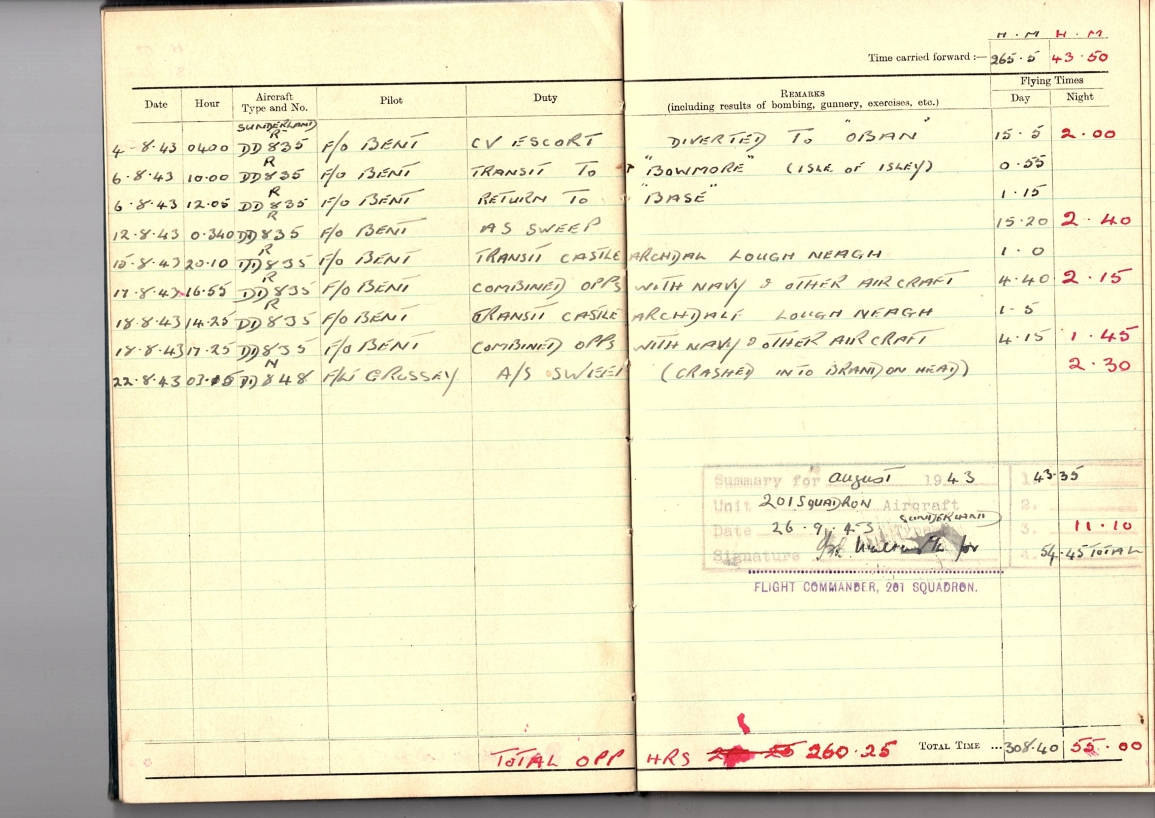 H . M H . M
Time carried forward :— 265·5 43·50
Flying Times
Date Hour Aircraft Type and No. Pilot Duty REMARKS (including results of bombing, gunnery, exercises, etc.) Day Night
SUNDERLAND
R
4-8-43 0400 DD835 F/O BENT CV ESCORT DIVERTED TO "OBAN" 15·5 2·00
R
6·8·43 10·00 DD835 F/O BENT TRANSIT TO "BOWMORE" (ISLE OF ISLEY) 0·55
R
6·8·43 12·05 DD835 F/O BENT RETURN TO "BASE" 1·15
R
12·8·43 0·340 DD835 F/O BENT AS SWEEP 15·20 2·40
R
15·8·43 20·10 DD835 F/O BENT TRANSIT CASTLE ARCHDAL LOUGH NEAGH 1·0
R
17·8·43 16·55 DD835 F/O BENT COMBINED OPPS WITH NAVY & OTHER AIRCRAFT 4·40 2·15
R
18·8·43 14·25 DD835 F/O BENT TRANSIT CASTLE ARCHDALE LOUGH NEAGH 1·5
18·8·43 17·25 DD835 F/O BENT COMBINED OPPS WITH NAVY & OTHER AIRCRAFT 4·15 1·45
N
22·8·43 03·05 DD848 F/Lt GROSSEY A/S SWEEP (CRASHED INTO BRANDON HEAD) 2·30
Summary for August 1943 1. 43·35
Unit 201 SQUADRON Aircraft 2.
SUNDERLAND
Date 26·9·43 Type 3. 11·10
Signature for 4. 54·45 TOTAL
FLIGHT COMMANDER, 201 SQUADRON.
TOTAL OPP HRS 260·25 TOTAL TIME ... 308·40 55·00